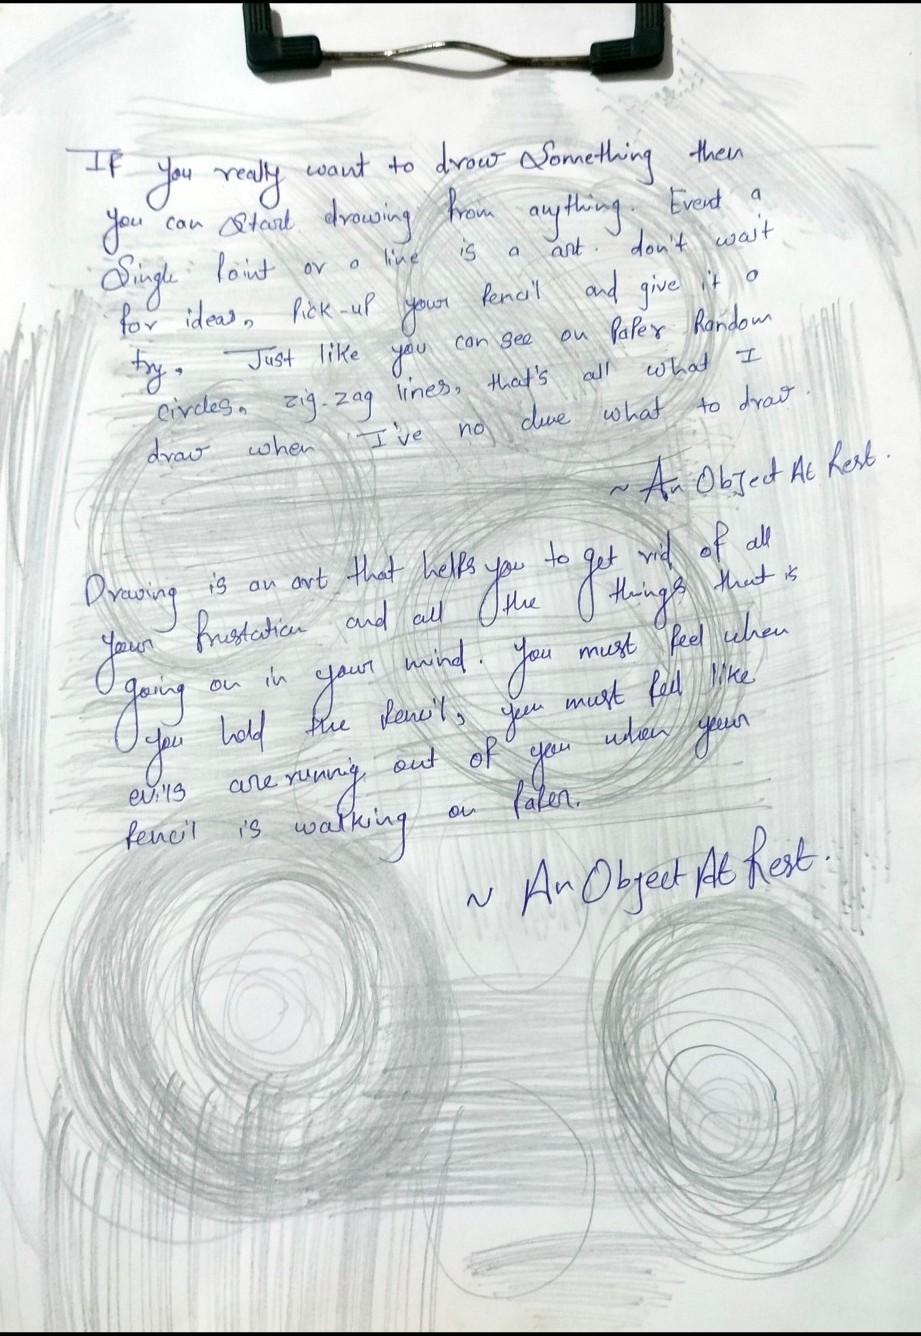 If you really want to draw Something then
you can Start drawing from anything. Event a
Single Point or a line is a art. don't wait
for ideas, Pick-up your Pencil and give it a
try, Just like you can see on Paper Random
circles, zig-zag lines, that's all what I
draw when I've no clue what to draw.
~ An Object At Rest.
Drawing is an art that helps you to get rid of all
your frustation and all the things that is
going on in your mind. You must feel when
you hold the Pencil, you must fell like
evils are runnig out of you when your
Pencil is walking on Paper.
~ An Object At Rest.